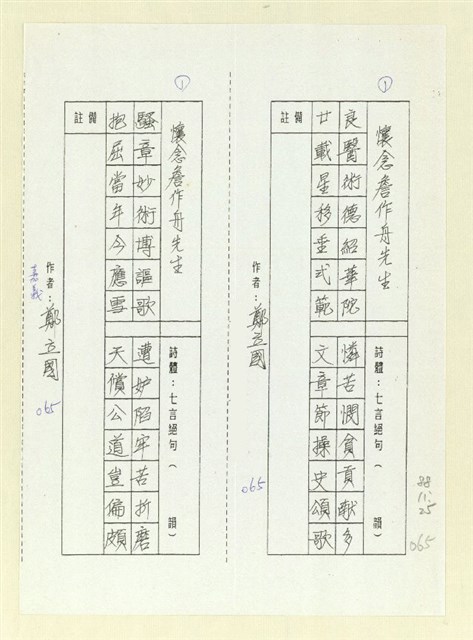 ①
懷念詹作舟先生
詩體：七言絕句（　韻）
良醫術德紹華陀
憐苦憫貧貢献多
廿載星移垂式範
文章節操史頌歌
備註
作者：鄭立國
065
88
11.
25
065
①
懷念詹作舟先生
詩體：七言絕句（　韻）
騷章妙術博謳歌
遭妒陷牢苦折磨
抱屈當年今應雪
天償公道豈偏頗
備註
作者：鄭立國
嘉義
065